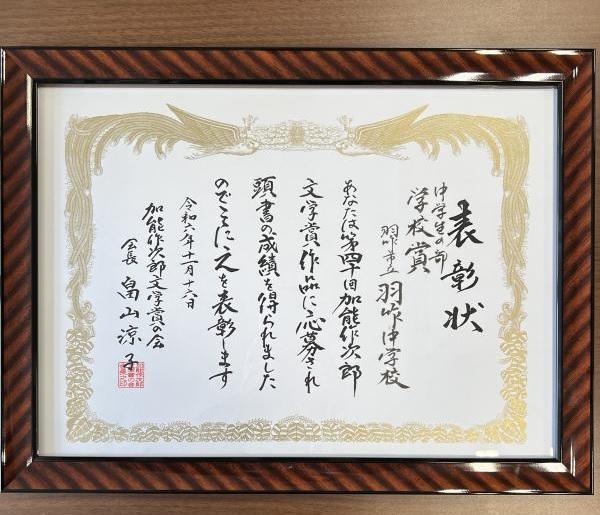 表彰状
中学生の部
学校賞
羽咋市立 羽咋中学校
あなたは第四十回加能作次郎
文学賞作品に応募され
頭書の成績を得られました
のでここに之を表彰します
令和六年十一月十六日
加能作次郎文学賞の会
会長 畠山涼子